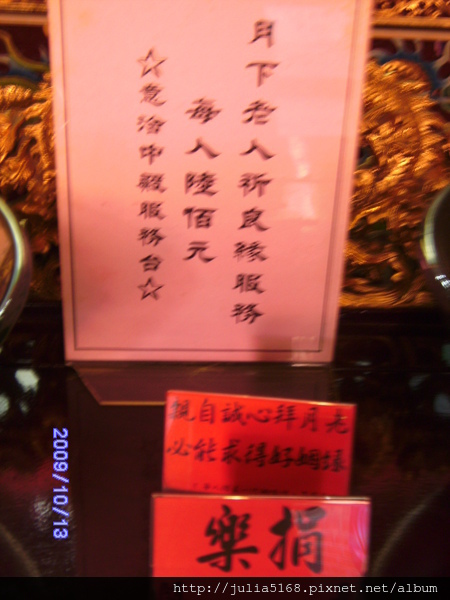 月下老人祈良緣服務
每人陸佰元
☆意洽中殿服務台☆
親自誠心拜月老
必能求得好姻緣
樂捐
2009/10/13
http://julia5168.pixnet.net/album